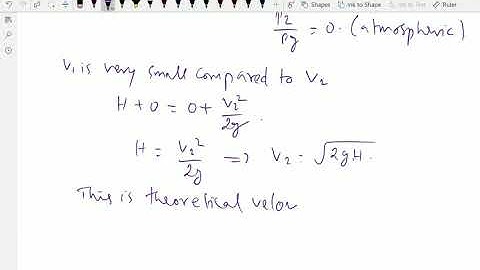 Shapes Ink to Shape Ink to
P2/ρg = 0. (atmospheric)
V1 is very small compared to V2
H + 0 = 0 + V2²/2g.
H = V2²/2g ⇒ V2 = √2gH.
This is theoretical veloc